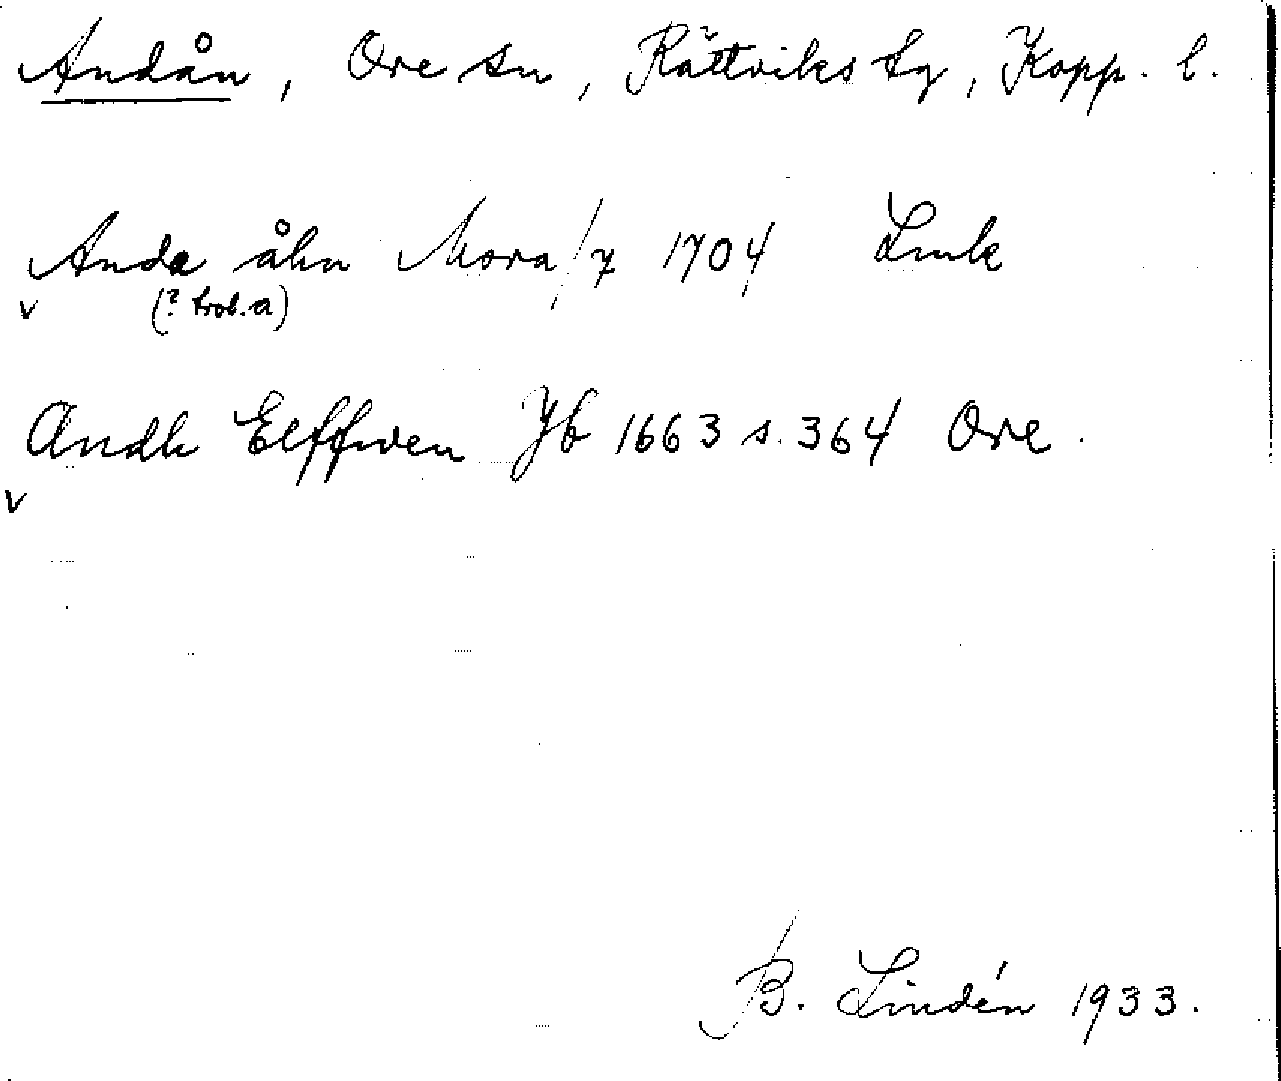 Andån, Ore sn, Rättviks tg, Kopp. l.
Anda åhn Mora/7 1704 Lmk
v (? trol. a)
Andh Elffwen Jb 1663 s. 364 Ore.
v
B. Lindén 1933.